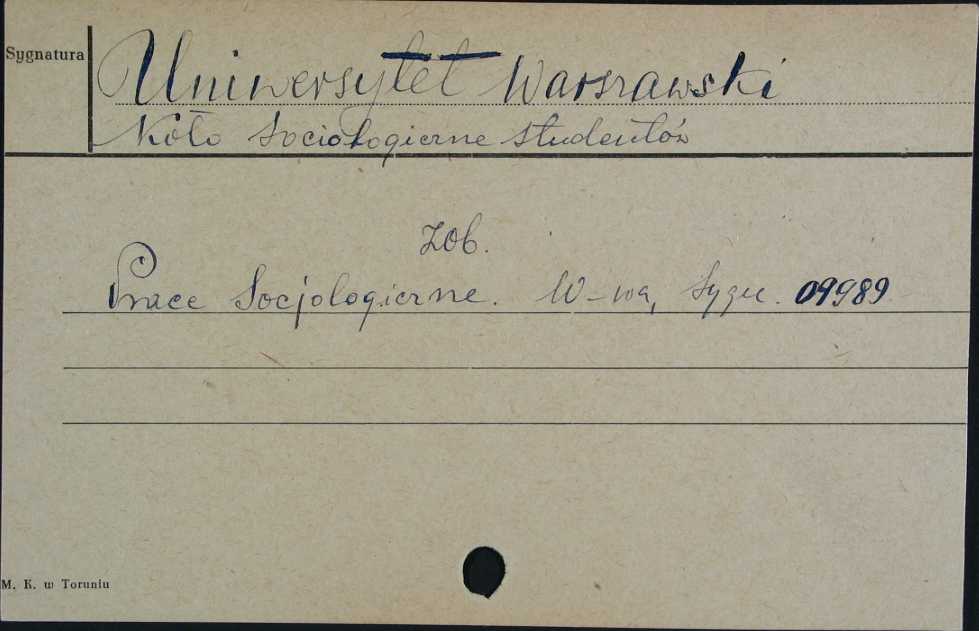 Sygnatura
Uniwersytet Warszawski
Koło Socjologiczne studentów
Zob.
Prace Socjologiczne. W-wa, Sygn. 09989
M. K. w Toruniu